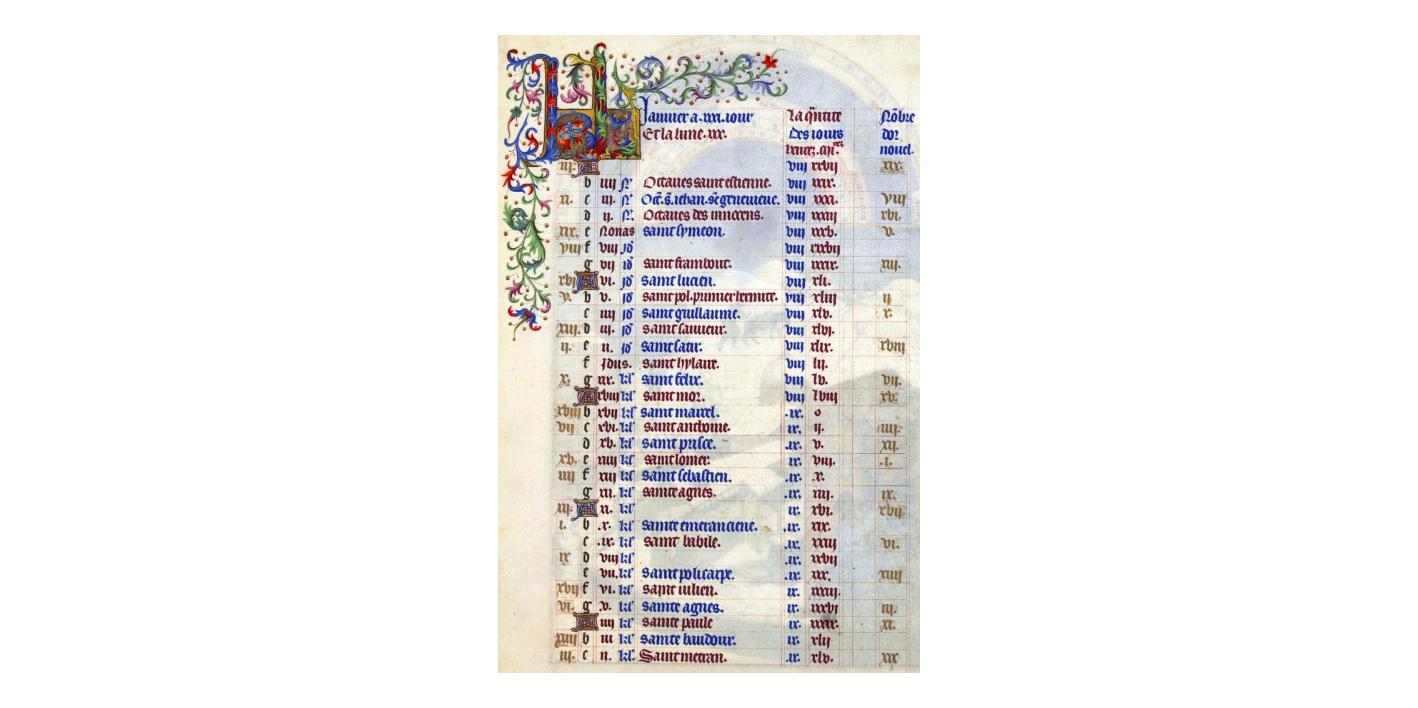 Januier a .xxxi. iour La q̃ntite Nõbre
Et la lune .xxx. Des iours dor
nouel.
iii. A viii xxvii xix.
b iiii N̄ Octaues saint estienne. viii xxix.
xi. c iii. N̄. Oct̄. s̄. iehan. sc̄e geneuieue. viii xxxi. viii
d ii. N̄. Octaues des innocens. viii xxxiii xvi.
xix. e Nonas saint symeon. viii xxxv. v.
viii f viii id̄ viii xxxvii
g vii id̄ saint frambout. viii xxxix. xiii.
xvi A vi. id̄ saint lucien. viii xli.
v. b v. id̄ saint pol. premier hermite. viii xliii ii
c iiii id̄ saint guillaume. viii xlv. x.
xiii. d iii. id̄ saint sauueur. viii xlvi.
ii. e ii. id̄ saint satir. viii xlix. xviii
f Idus. saint hylaire. viii lii.
x. g xix. kl̄ saint felix. viii lv. vii.
A xviii kl̄ saint mor. viii lviii xv.
xviii b xvii kl̄ saint marcel. .ix. o
vii c xvi. kl̄ saint anthoine. ix. ii. iiii.
d xv. kl̄ saint prisce. .ix. v. xii.
xv. e xiiii kl̄ saint lomer. ix. viii. .i.
iiii f xiii kl̄ saint sebastien. .ix. .x.
g xii. kl̄ sainte agnes. .ix. xiii. ix.
xii. A xi. kl̄ ix. xvi. xvii
i. b .x. kl̄ sainte emeranciene. .ix. xix.
c .ix. kl̄ saint babile. .ix. xxiii vi.
ix d viii kl̄ .ix. xxvii
e vii. kl̄ saint policarpe. .ix. xxx. xiiii
xvii f vi. kl̄ saint iulien. ix. xxxiii.
vi. g .v. kl̄ sainte agnes. ix. xxxvi iii.
A iiii kl̄ sainte paule ix. xxxix. xi.
xiiii b iii kl̄ sainte baudour. ix. xlii
iii. c ii. kl̄. Saint metran. .ix. xlv. xix